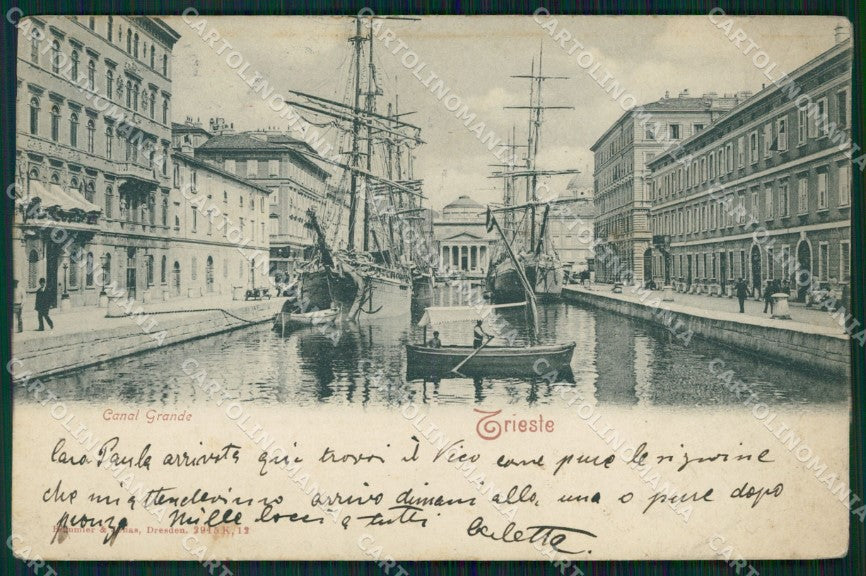 Canal Grande
Trieste
Cara Paula arrivata qui trovai il Vico come pure le signorine
che mi attendevano arrivo dimani alla una o pure dopo
pranzo Mille baci a tutti
Carletta.
& Jonas, Dresden. 2945 K, 12
CARTOLINOMANIA